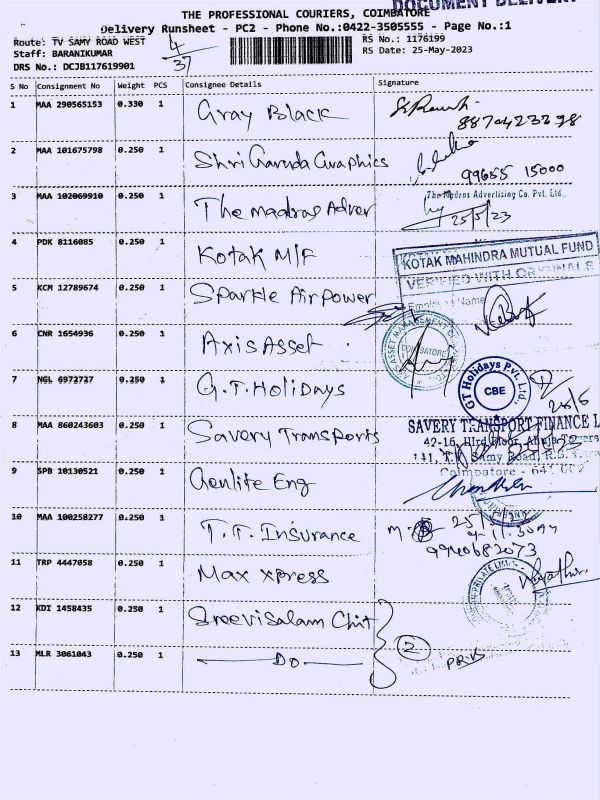 DOCUMENT DELIVERY
THE PROFESSIONAL COURIERS, COIMBATORE
Delivery Runsheet - PC2 - Phone No.:0422-3505555 - Page No.:1
Route: TV SAMY ROAD WEST
4/37
RS No.: 1176199
Staff: BARANIKUMAR
RS Date: 25-May-2023
DRS No.: DCJB117619901
S No Consignment No Weight PCS Consignee Details Signature
1 MAA 290565153 0.330 1 Gray Black
8870423298
2 MAA 101675798 0.250 1 Shri Garuda Graphics
99655 15000
3 MAA 102069910 0.250 1 The madras Adver
The Madras Advertising Co. Pvt. Ltd.,
25/5/23
4 PDK 8116085 0.250 1 Kotak M/F
KOTAK MAHINDRA MUTUAL FUND
VERIFIED WITH ORIGINALS
Employee Name
5 KCM 12789674 0.250 1 Sparkle Airpower
6 CNR 1654936 0.250 1 Axis Asset
ASSET MANAGEMENT
COIMBATORE
7 NGL 6972727 0.250 1 G.T. Holidays
GT Holidays Pvt. Ltd.,
CBE
8 MAA 860243603 0.250 1 Savery Transports
SAVERY TRANSPORT FINANCE L
42-16, IIIrd Floor,
Samy Road, R.S.
Coimbatore - 641 002
9 SPB 10130521 0.250 1 Genlite Eng
10 MAA 100258277 0.250 1 T.T. Insurance
9940682073
11 TRP 4447058 0.250 1 Max xpress
PRIVATE LIMITED
12 KDI 1458435 0.250 1 Sreevisalam Chit
2
13 MLR 3061043 0.250 1 Do